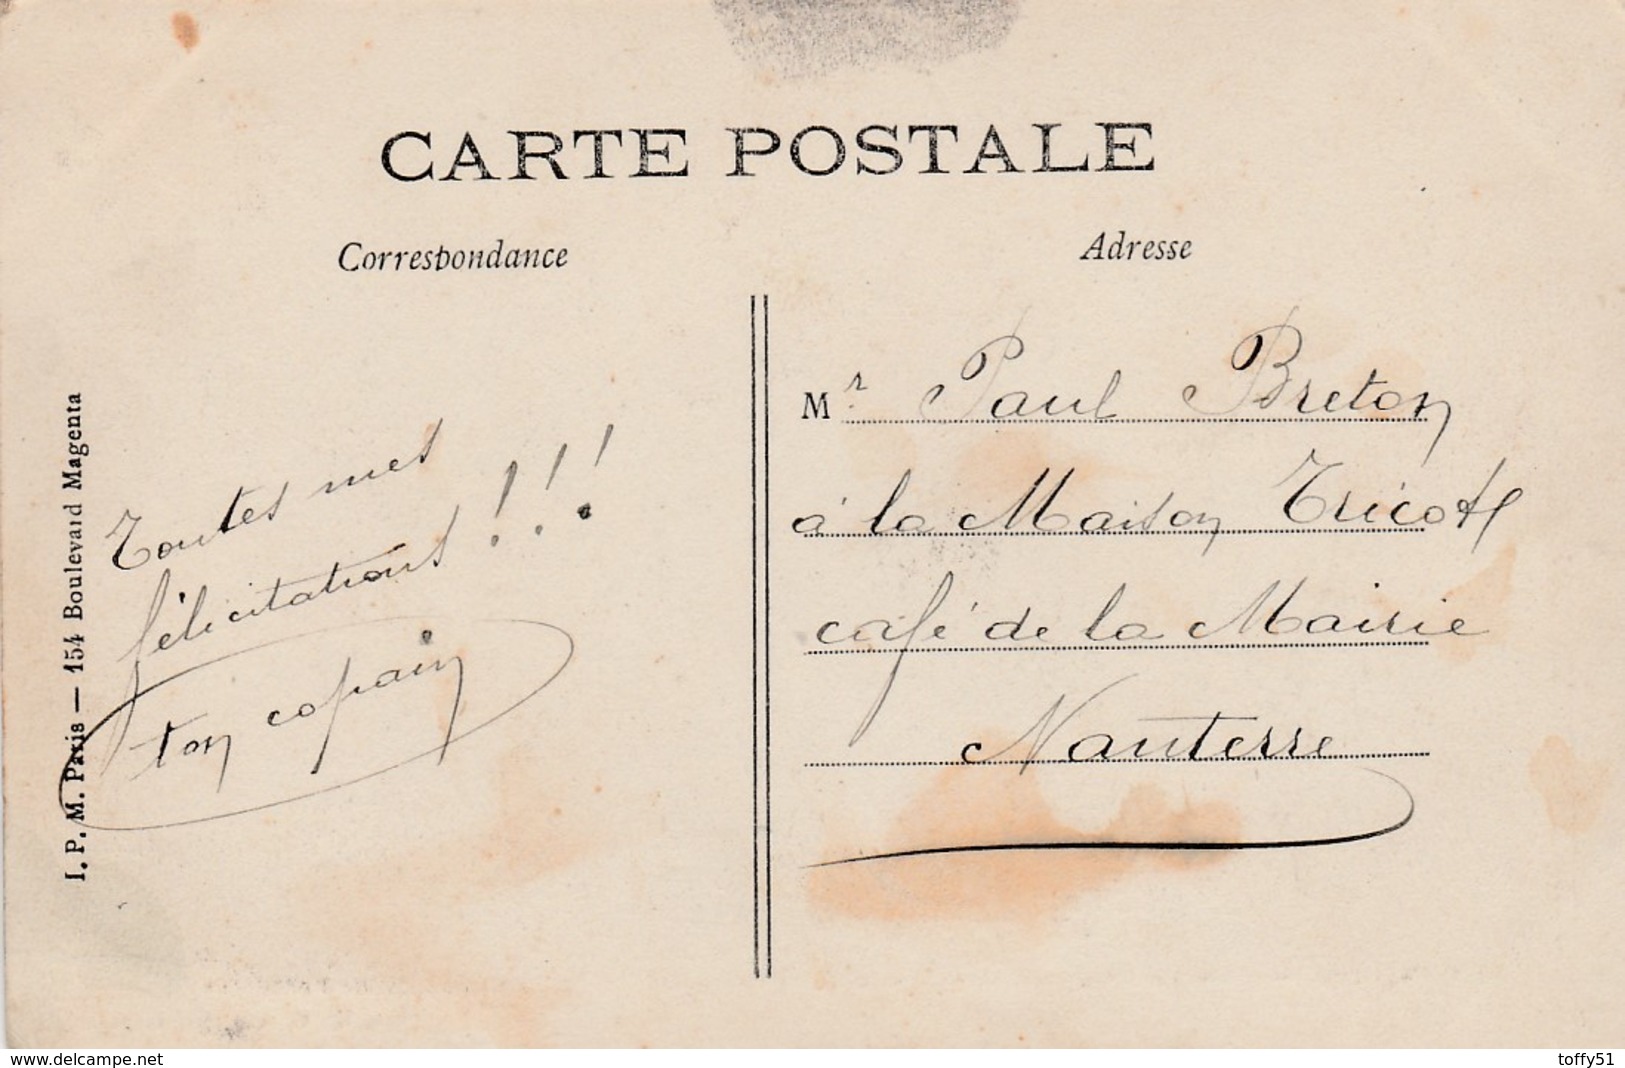 CARTE POSTALE
Correspondance
Adresse
Toutes mes
félicitations !!!
ton copain
Mr Paul Breton
à la Maison Tricott
café de la Mairie
Nanterre
I. P. M. Paris — 154 Boulevard Magenta
www.delcampe.net
toffy51